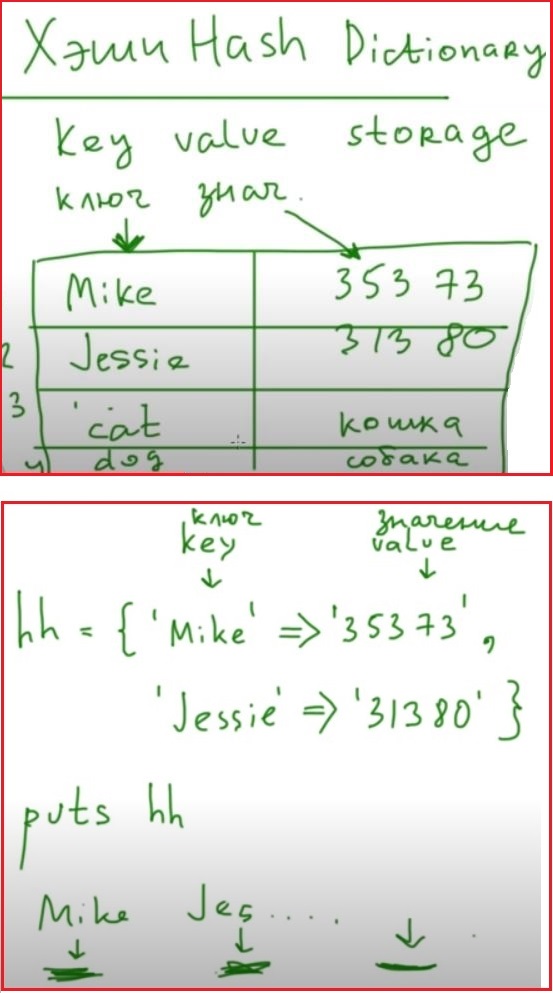 Хэши Hash Dictionary
Key value storage
ключ знач.
Mike 353 73
2 Jessie 313 80
3 'cat кошка
4 dog собака
ключ значение
key value
hh = { 'Mike' => '35373',
'Jessie' => '31380' }
puts hh
Mike Jes.... .